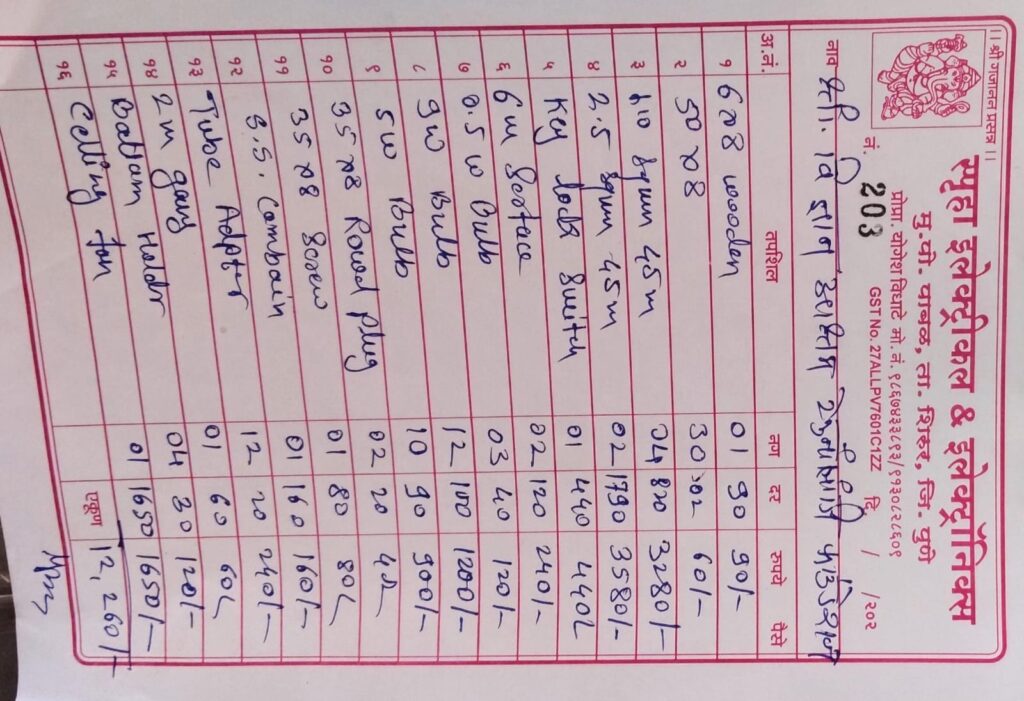 || श्री गजानन प्रसन्न ||
स्पृहा इलेक्ट्रीकल & इलेक्ट्रॉनिक्स
मु. पो. पाबळ, ता. शिरूर, जि. पुणे
प्रोप्रा. योगेश विधाटे मो. नं. ९८६७४३३८९३/९१३०८२८६०९
नं. 203 GST No. 27ALLPV7601C1ZZ दि / /२०२
नाव श्री. विज्ञान आश्रम
अ.नं. तपशिल नग दर रुपये पैसे
१ 6x8 wooden 01 90 90/-
२ 50x8 30 02 60/-
३ 1.0 sqmm 45m 04 820 3280/-
४ 2.5 sqmm 45m 02 1790 3580/-
५ Key lock switch 01 440 440/-
६ 6m Surface 02 120 240/-
७ 0.5w Bulb 03 40 120/-
८ 9w Bulb 12 100 1200/-
९ 5w Bulb 10 90 900/-
१० 35x8 plug 02 20 40/-
११ 35x8 screw 01 80 80/-
१२ 3.5. Combain 01 160 160/-
१३ Tube Adpter 12 20 240/-
१४ 2m gang 01 60 60/-
१५ Battam Holdr 04 30 120/-
१६ Celling fan 01 1650 1650/-
एकुण 12,260/-